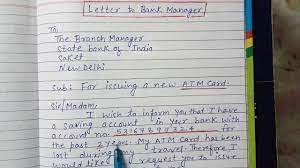 Letter to Bank Manager
To,
The Branch Manager
State bank of India
Saket
New Delhi
Sub: For issuing a new ATM Card.
Sir/Madam,
I wish to inform you that I have
a saving account in your bank with
account no. 53169893324 for
the past 2 years. My ATM Card has been
lost during my travel. Therefore I
would like to request you to issue